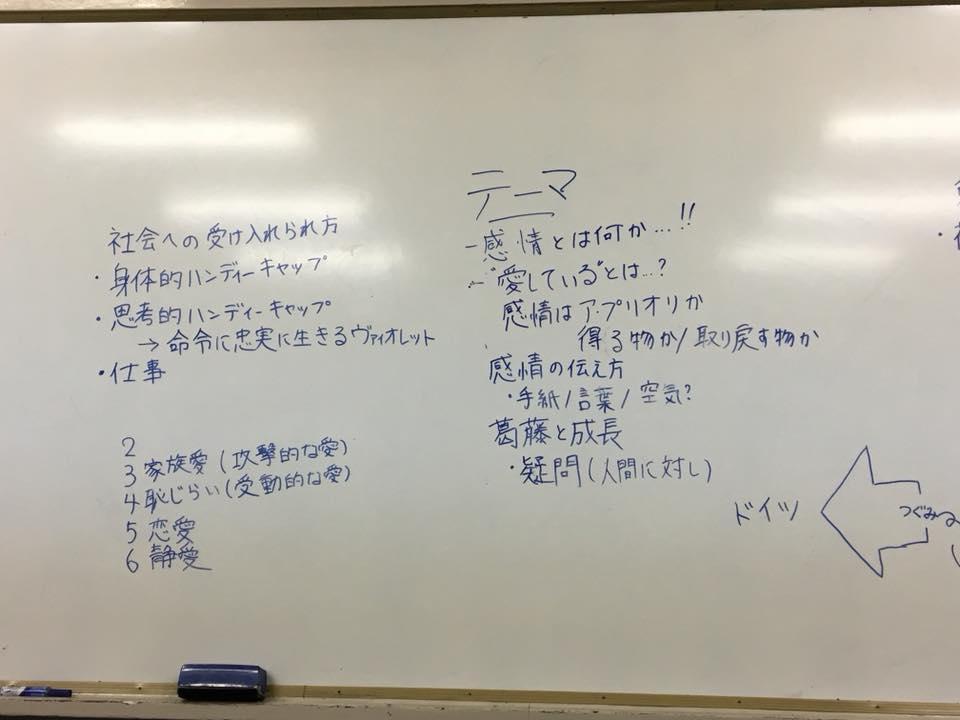 社会への受け入れられ方
・身体的ハンディーキャップ
・思考的ハンディーキャップ
→命令に忠実に生きるヴァイオレット
・仕事
2
3 家族愛(攻撃的な愛)
4 恥じらい(受動的な愛)
5 恋愛
6 静愛
テーマ
-感情とは何か…!!
-"愛している"とは…?
感情はア・プリオリか
得る物か/取り戻す物か
感情の伝え方
・手紙/言葉/空気?
葛藤と成長
・疑問(人間に対し)
ドイツ
つぐみ